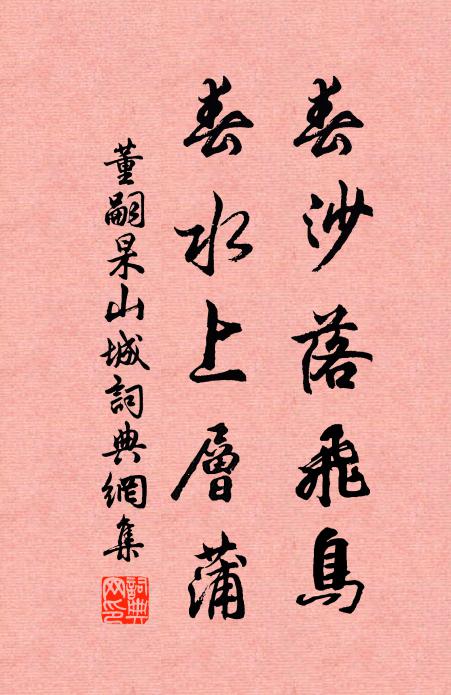 春沙落飛鳥
春水上層蒲
董嗣杲山城詞典網集
詞典網印